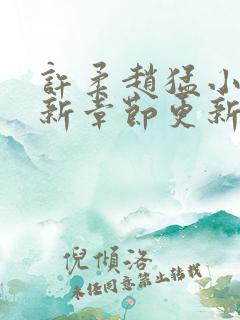 許柔趙猛小
新章節更新
倪傾洛
未经同意禁止转载